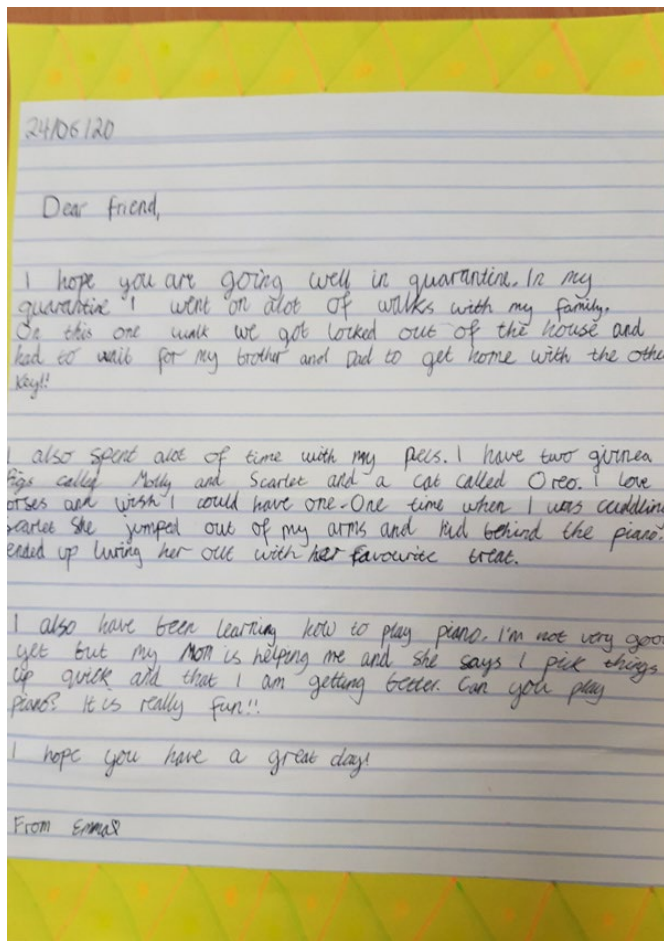 24/06/20
Dear friend,
I hope you are going well in quarantine. In my
quarantine I went on alot of walks with my family.
On this one walk we got locked out of the house and
had to wait for my brother and Dad to get home with the othe
key!!
I also spent alot of time with my pets. I have two guinea
Pigs called Molly and Scarlet and a cat called Oreo. I love
orses and wish I could have one. One time when I was cuddlin
scarlet she jumped out of my arms and hid behind the piano.
ended up luring her out with her favourite treat.
I also have been learning how to play piano. I'm not very goo
yet but my Mom is helping me and she says I pick things
up quick and that I am getting better. Can you play
piano? It is really fun!!
I hope you have a great day!
From Emma♡